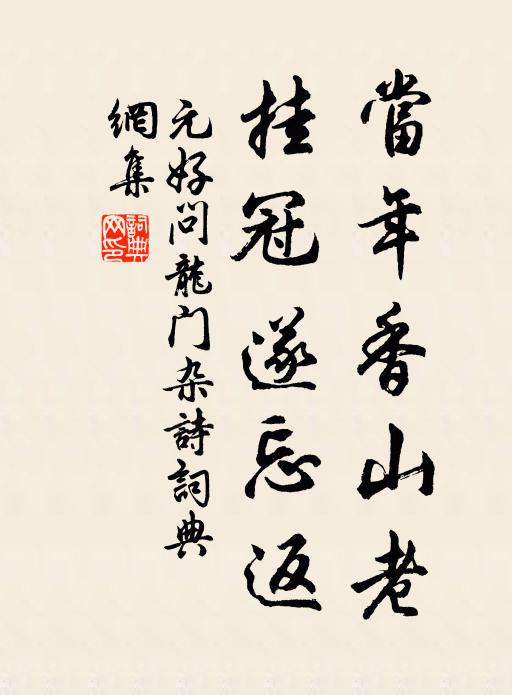 當年香山老
挂冠遂忘返
元好问龍门杂詩詞典
網集
詞典
网印